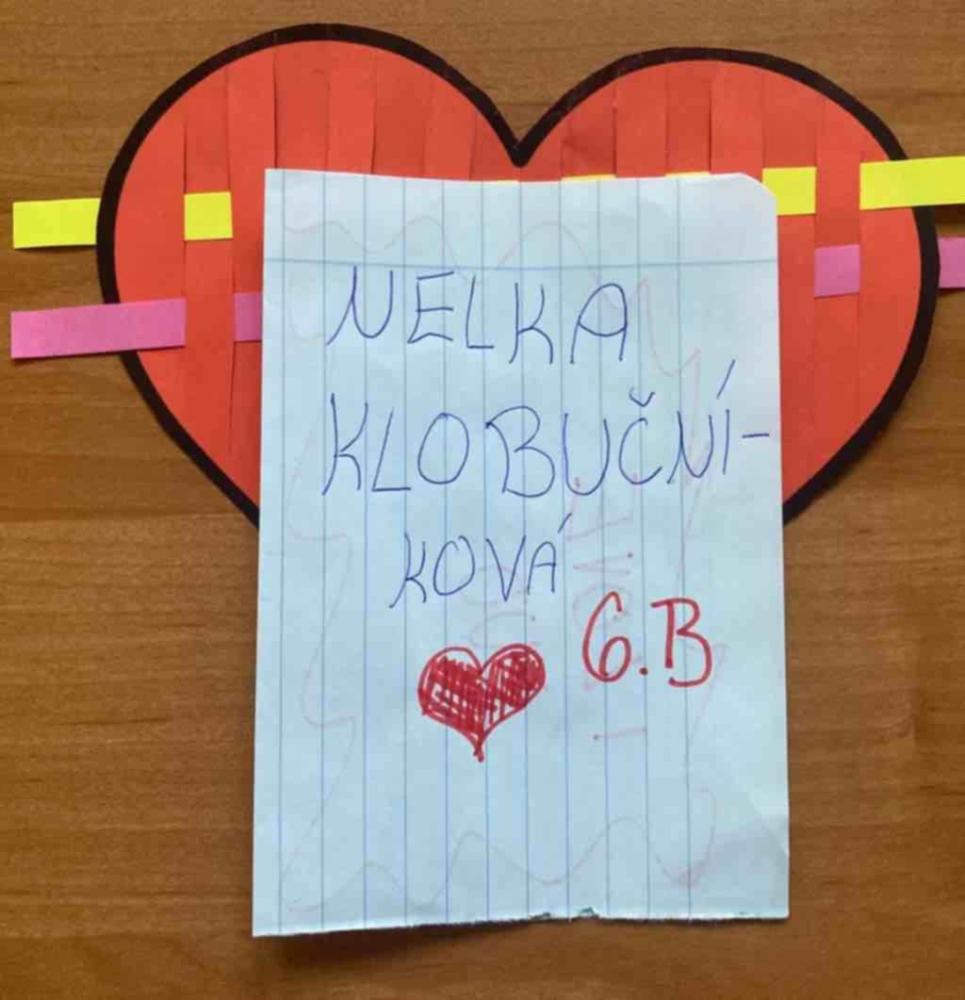 NELKA
KLOBUČNÍ-
KOVÁ
6.B